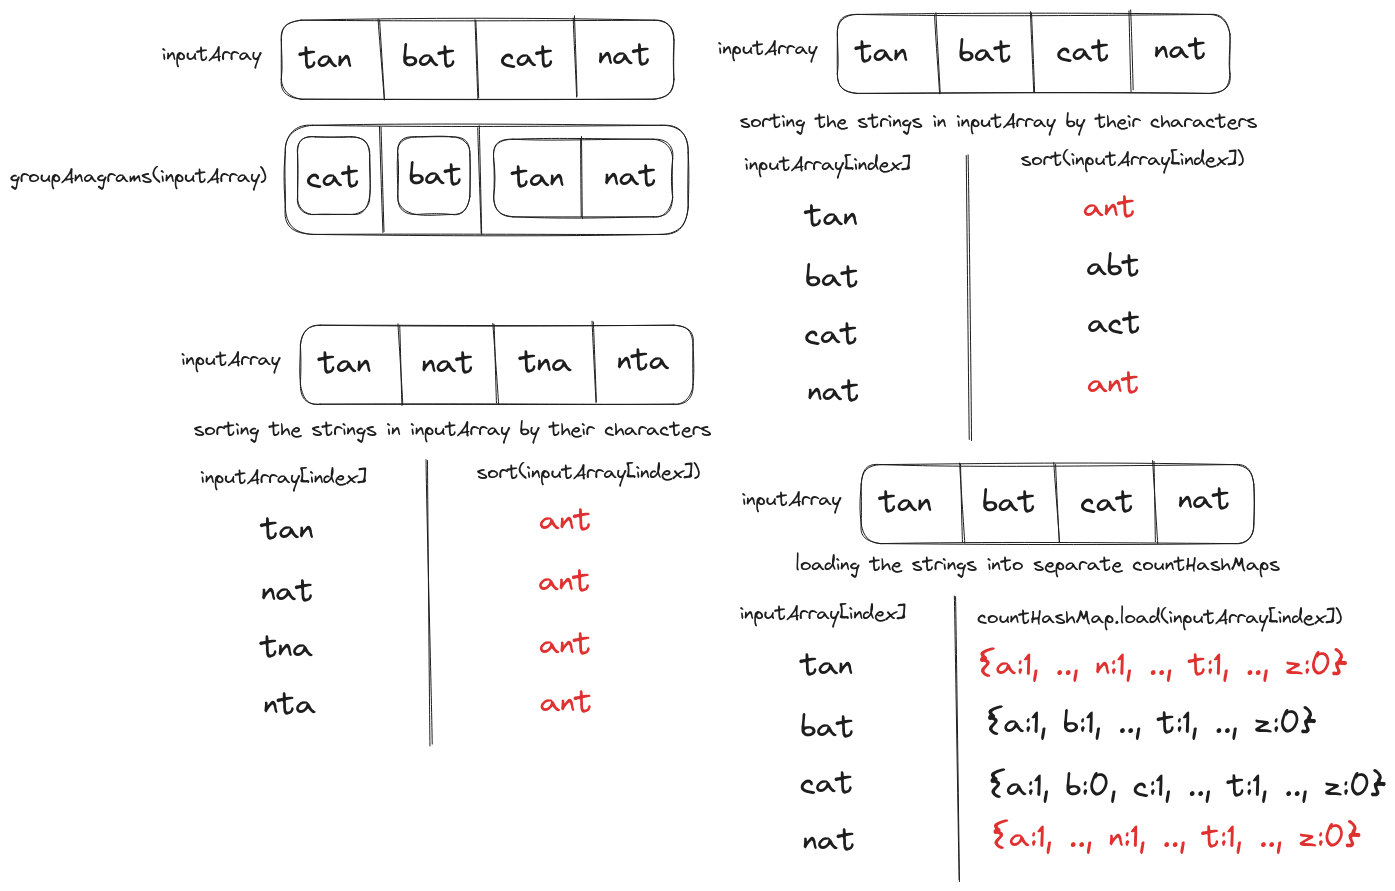 inputArray tan bat cat nat
groupAnagrams(inputArray) cat bat tan nat
inputArray tan bat cat nat
sorting the strings in inputArray by their characters
inputArray[index] sort(inputArray[index])
tan ant
bat abt
cat act
nat ant
inputArray tan nat tna nta
sorting the strings in inputArray by their characters
inputArray[index] sort(inputArray[index])
tan ant
nat ant
tna ant
nta ant
inputArray tan bat cat nat
loading the strings into separate countHashMaps
inputArray[index] countHashMap.load(inputArray[index])
tan {a:1, .., n:1, .., t:1, .., z:0}
bat {a:1, b:1, .., t:1, .., z:0}
cat {a:1, b:0, c:1, .., t:1, .., z:0}
nat {a:1, .., n:1, .., t:1, .., z:0}